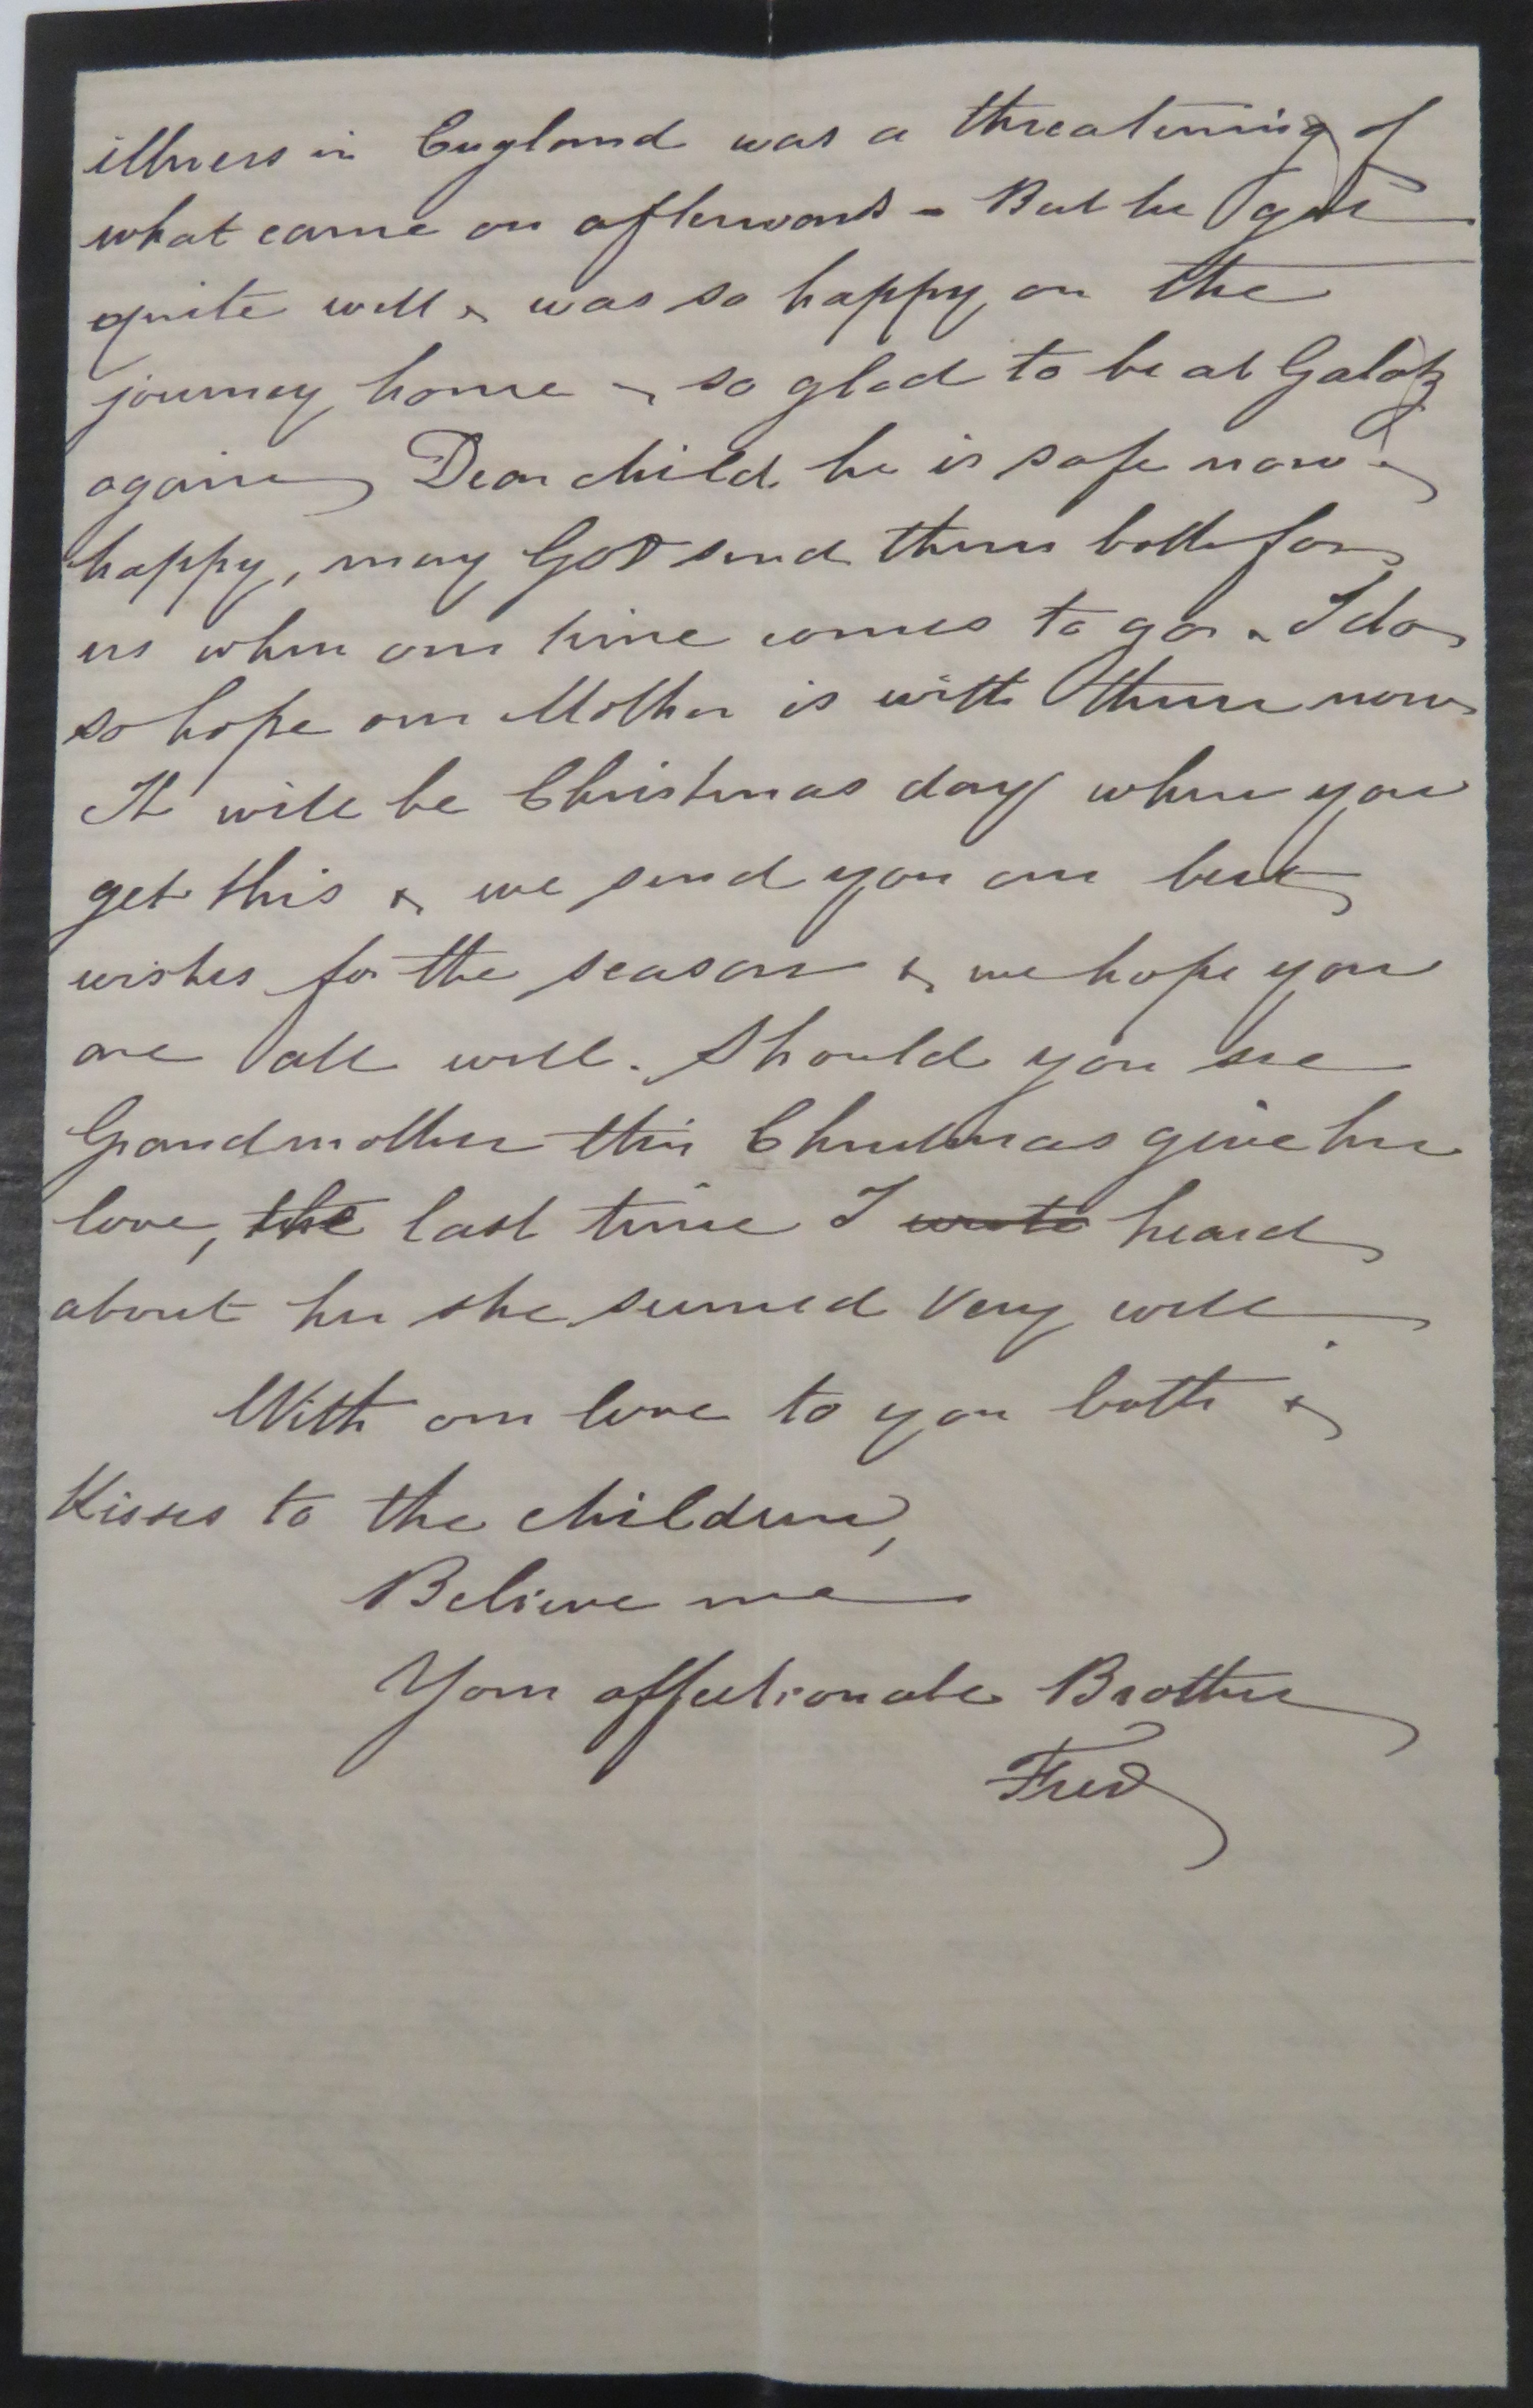 illness in England was a threatening of
what came on afterwards - But he got
quite well & was so happy on the
journey home & so glad to be at Galatz
again Dear child he is safe now &
happy, may God send them both for
us when our time comes to go. I do
so hope our Mother is with them now
It will be Christmas day when you
get this & we send you our best
wishes for the season & we hope you
are all well. Should you see
Grandmother this Christmas give her
love, the last time I wrote heard
about her she seemed very well.
With our love to you both &
Kisses to the children,
Believe me
Your affectionate Brother
Fred